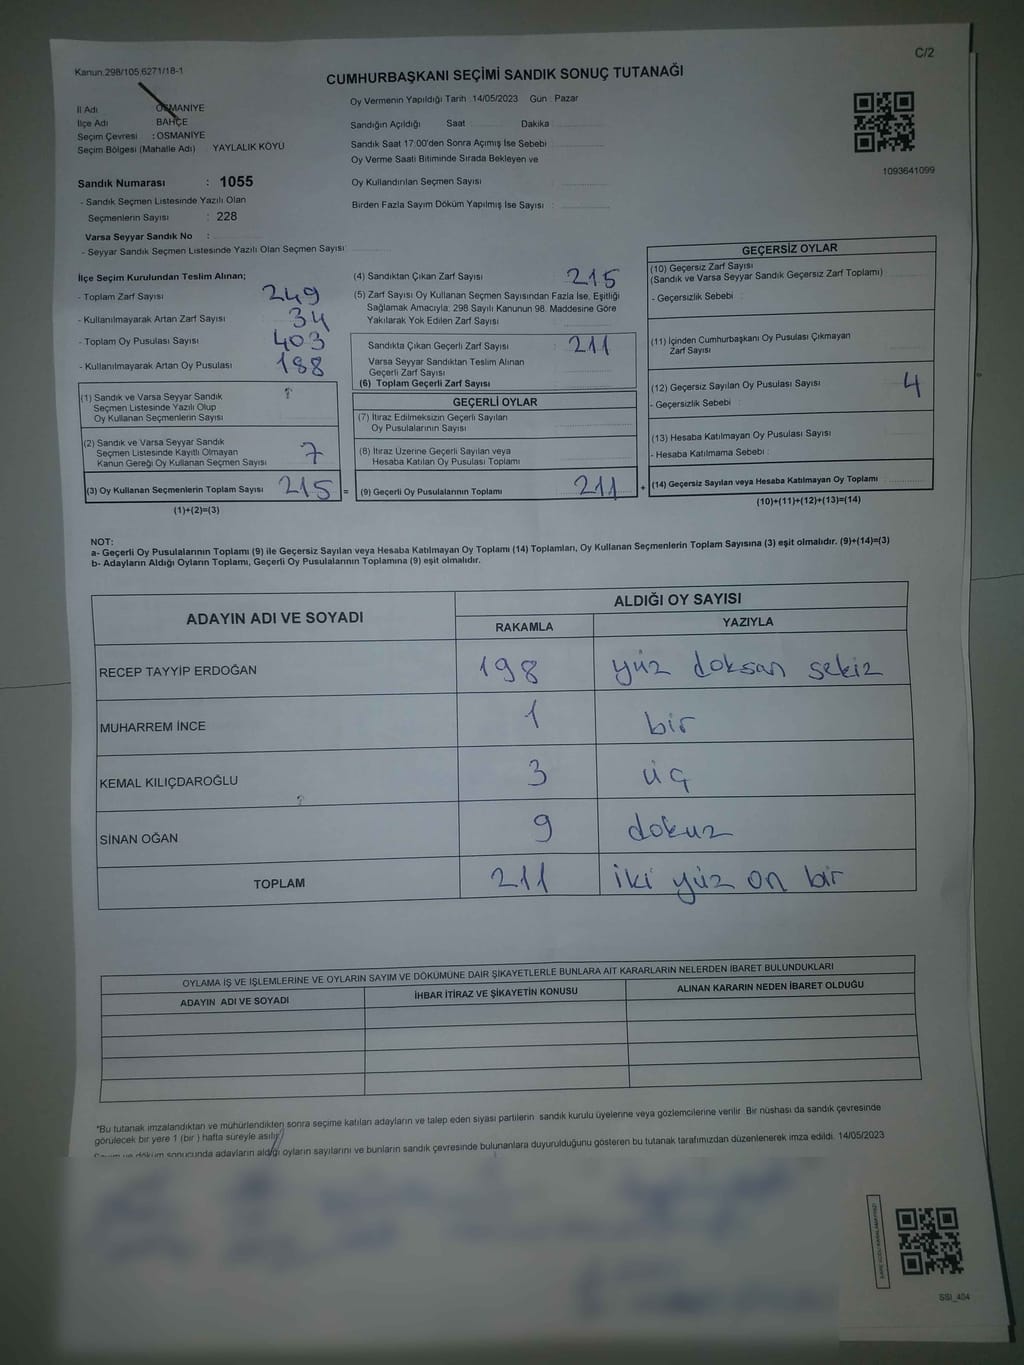 C/2
Kanun.298/105,6271/18-1
CUMHURBAŞKANI SEÇİMİ SANDIK SONUÇ TUTANAĞI
İl Adı OSMANİYE
İlçe Adı BAHÇE
Seçim Çevresi : OSMANİYE
Seçim Bölgesi (Mahalle Adı) YAYLALIK KÖYÜ
Sandık Numarası : 1055
- Sandık Seçmen Listesinde Yazılı Olan
Seçmenlerin Sayısı : 228
Varsa Seyyar Sandık No :
- Seyyar Sandık Seçmen Listesinde Yazılı Olan Seçmen Sayısı:
Oy Vermenin Yapıldığı Tarih : 14/05/2023 Gün : Pazar
Sandığın Açıldığı Saat Dakika
Sandık Saat 17:00'den Sonra Açımış İse Sebebi
Oy Verme Saati Bitiminde Sırada Bekleyen ve
Oy Kullandırılan Seçmen Sayısı
Birden Fazla Sayım Döküm Yapılmış İse Sayısı :
1093641099
İlçe Seçim Kurulundan Teslim Alınan;
- Toplam Zarf Sayısı 249
- Kullanılmayarak Artan Zarf Sayısı 34
- Toplam Oy Pusulası Sayısı 403
- Kullanılmayarak Artan Oy Pusulası 188
(1) Sandık ve Varsa Seyyar Sandık
Seçmen Listesinde Yazılı Olup
Oy Kullanan Seçmenlerin Sayısı
(2) Sandık ve Varsa Seyyar Sandık
Seçmen Listesinde Kayıtlı Olmayan
Kanun Gereği Oy Kullanan Seçmen Sayısı 7
(3) Oy Kullanan Seçmenlerin Toplam Sayısı 215 =
(1)+(2)=(3)
(4) Sandıktan Çıkan Zarf Sayısı 215
(5) Zarf Sayısı Oy Kullanan Seçmen Sayısından Fazla İse, Eşitliği
Sağlamak Amacıyla; 298 Sayılı Kanunun 98. Maddesine Göre
Yakılarak Yok Edilen Zarf Sayısı
Sandıkta Çıkan Geçerli Zarf Sayısı : 211
Varsa Seyyar Sandıktan Teslim Alınan
Geçerli Zarf Sayısı
(6) Toplam Geçerli Zarf Sayısı
GEÇERLİ OYLAR
(7) İtiraz Edilmeksizin Geçerli Sayılan
Oy Pusulalarının Sayısı
(8) İtiraz Üzerine Geçerli Sayılan veya
Hesaba Katılan Oy Pusulası Toplamı
(9) Geçerli Oy Pusulalarının Toplamı 211 +
GEÇERSİZ OYLAR
(10) Geçersiz Zarf Sayısı
(Sandık ve Varsa Seyyar Sandık Geçersiz Zarf Toplamı)
- Geçersizlik Sebebi :
(11) İçinden Cumhurbaşkanı Oy Pusulası Çıkmayan
Zarf Sayısı
(12) Geçersiz Sayılan Oy Pusulası Sayısı 4
- Geçersizlik Sebebi :
(13) Hesaba Katılmayan Oy Pusulası Sayısı
- Hesaba Katılmama Sebebi :
(14) Geçersiz Sayılan veya Hesaba Katılmayan Oy Toplamı
(10)+(11)+(12)+(13)=(14)
NOT:
a- Geçerli Oy Pusulalarının Toplamı (9) ile Geçersiz Sayılan veya Hesaba Katılmayan Oy Toplamı (14) Toplamları, Oy Kullanan Seçmenlerin Toplam Sayısına (3) eşit olmalıdır. (9)+(14)=(3)
b- Adayların Aldığı Oyların Toplamı, Geçerli Oy Pusulalarının Toplamına (9) eşit olmalıdır.
ADAYIN ADI VE SOYADI ALDIĞI OY SAYISI
RAKAMLA YAZIYLA
RECEP TAYYİP ERDOĞAN 198 yüz doksan sekiz
MUHARREM İNCE 1 bir
KEMAL KILIÇDAROĞLU 3 üç
SİNAN OĞAN 9 dokuz
TOPLAM 211 iki yüz on bir
OYLAMA İŞ VE İŞLEMLERİNE VE OYLARIN SAYIM VE DÖKÜMÜNE DAİR ŞİKAYETLERLE BUNLARA AİT KARARLARIN NELERDEN İBARET BULUNDUKLARI
ADAYIN ADI VE SOYADI İHBAR İTİRAZ VE ŞİKAYETİN KONUSU ALINAN KARARIN NEDEN İBARET OLDUĞU
*Bu tutanak imzalandıktan ve mühürlendikten sonra seçime katılan adayların ve talep eden siyasi partilerin sandık kurulu üyelerine veya gözlemcilerine verilir. Bir nüshası da sandık çevresinde
görülecek bir yere 1 (bir ) hafta süreyle asılır.
Sayım ve döküm sonucunda adayların aldığı oyların sayılarını ve bunların sandık çevresinde bulunanlara duyurulduğunu gösteren bu tutanak tarafımızdan düzenlenerek imza edildi. 14/05/2023
SSI_404